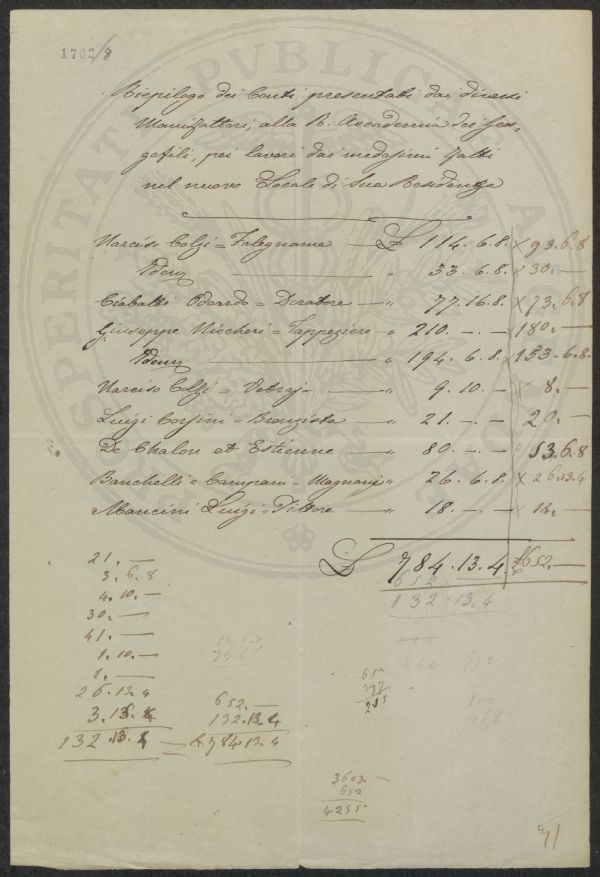 1702/8
Riepilogo dei Conti presentati dai diversi
Manifattori, alla R. Accademia dei Geor=
gofili, pei lavori dai medesimi fatti
nel nuovo Locale di Sua Residenza
Narciso Colzi = Falegname £ 114. 6. 8. x 93. 6. 8
Idem " 33. 6. 8. x 30. —
Ciabatti Odoardo = Doratore — " 77. 16. 8. x 73. 6. 8
Giuseppe Niccheri = Tappeziere — " 210. — . — x 180. —
Idem " 194. 6. 8. x 153. 6. 8.
Narciso Colzi = Vetrajo — " 9. 10. — x 8. —
Luigi Corsini = Bronzista — " 21. — . — 20. —
De Chalon et Estienne — " 80. — . — 53. 6. 8
Banchelli = Campani = Magnani " 26. 6. 8. x 26. 13. 4
Mancini Luigi = Pittore — " 18. — . — x 14. —
£ 784. 13. 4. £ 652. —
652
132. 13. 4
21. —
3. 6. 8
4. 10. —
30. —
41. —
1. 10. —
1. —
26. 13. 4
3. 13. 4
132. 13. 4
652. —
132. 13. 4
784. 13. 4
652
397
255
3603. —
652
4255